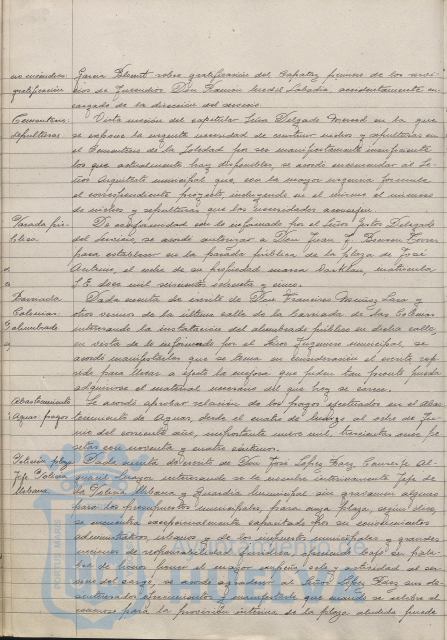 no incéndera
gratificación
García Florit sobre gratificación del Capataz primero de los servi-
cios de Incendios Don Ramón Medel Labadía, accidentalmente en-
cargado de la dirección del servicio.
Cementerio
sepulturas
Vista moción del capitular Señor Delgado Merced en la que
se expone la urgente necesidad de construir nichos y sepulturas en
el Cementerio de la Soledad por ser manifiestamente insuficiente
los que actualmente hay disponibles, se acordó encomendar al Se-
ñor Arquitecto municipal que, con la mayor urgencia formule
el correspondiente proyecto, incluyendo en el mismo el número
de nichos y sepulturas que las necesidades aconsejen.
Parada pú-
blica
De conformidad con lo informado por el Señor Gestor Delegado
del servicio, se acordó autorizar a Don Juan J.
para establecer en la parada pública de la plaza de José
Antonio, el coche de su propiedad marca matrícula
S.E. doce mil seiscientos setenta y cinco.
Barriada
Colonias
alumbrado
Dada cuenta de escrito de Don Francisco Muñoz Lara y
otros vecinos de la última calle de la barriada de las Colonias
interesando la instalación del alumbrado público en dicha calle,
en vista de lo informado por el Señor Ingeniero municipal, se
acordó manifestarles que se toma en consideración el escrito refe-
rido para llevar a efecto la mejora que piden tan pronto pueda
adquirirse el material necesario del que hoy se carece.
Abastecimiento
Aguas: pagos
Se acordó aprobar relación de los pagos efectuados en el abas-
tecimiento de Aguas, desde el cuatro de al ocho de Ju-
nio del corriente año, importante nueve mil, trescientas once pe-
setas con noventa y cuatro céntimos.
Petición plaza
Jefe Policía
Urbana
Dada cuenta de escrito de Don José López Páez
interesando se le nombre interinamente Jefe de
la Policía Urbana y Guardia Municipal sin gravamen alguno
para los presupuestos municipales, para cuya plaza, según dice,
se encuentra excepcionalmente capacitado por su conocimientos
administrativos, internos y de los ambientes municipales y grandes
nociones de responsabilidad y disciplina, ofreciendo bajo su pala-
bra de honor poner el mayor empeño, celo y actividad al ser-
vicio del cargo, se acordó agradecer al Señor López Páez sus de-
sinteresados ofrecimientos y manifestarle que cuando se celebre el
concurso para la provisión interina de la plaza aludida puede